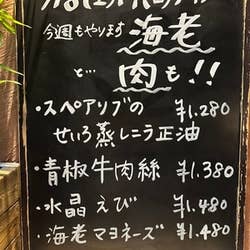 今週もやります 海老
と… 肉も!!
・スペアリブの ¥1.280
せいろ蒸しこう正油
・青椒牛肉絲 ¥1.380
・水晶えび ¥1.480
・海老マヨネーズ ¥1.480